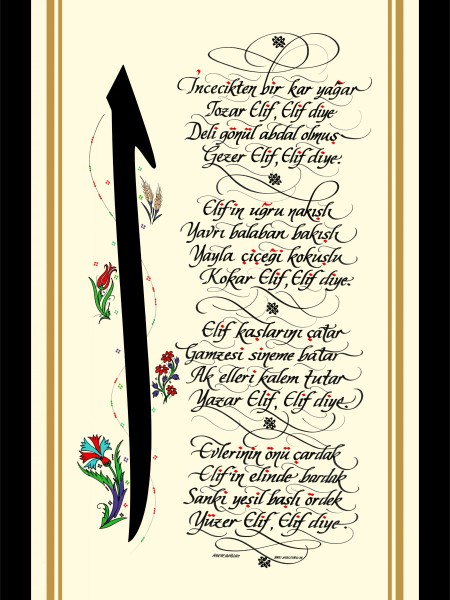 İncecikten bir kar yağar
Tozar Elif, Elif diye
Deli gönül abdal olmuş
Gezer Elif, Elif diye.
Elif'in uğru nakışlı
Yavrı balaban bakışlı
Yayla çiçeği kokuşlu
Kokar Elif, Elif diye.
Elif kaşlarını çatar
Gamzesi sineme batar
Ak elleri kalem tutar
Yazar Elif, Elif diye.
Evlerinin önü çardak
Elif'in elinde bardak
Sanki yeşil başlı ördek
Yüzer Elif, Elif diye.